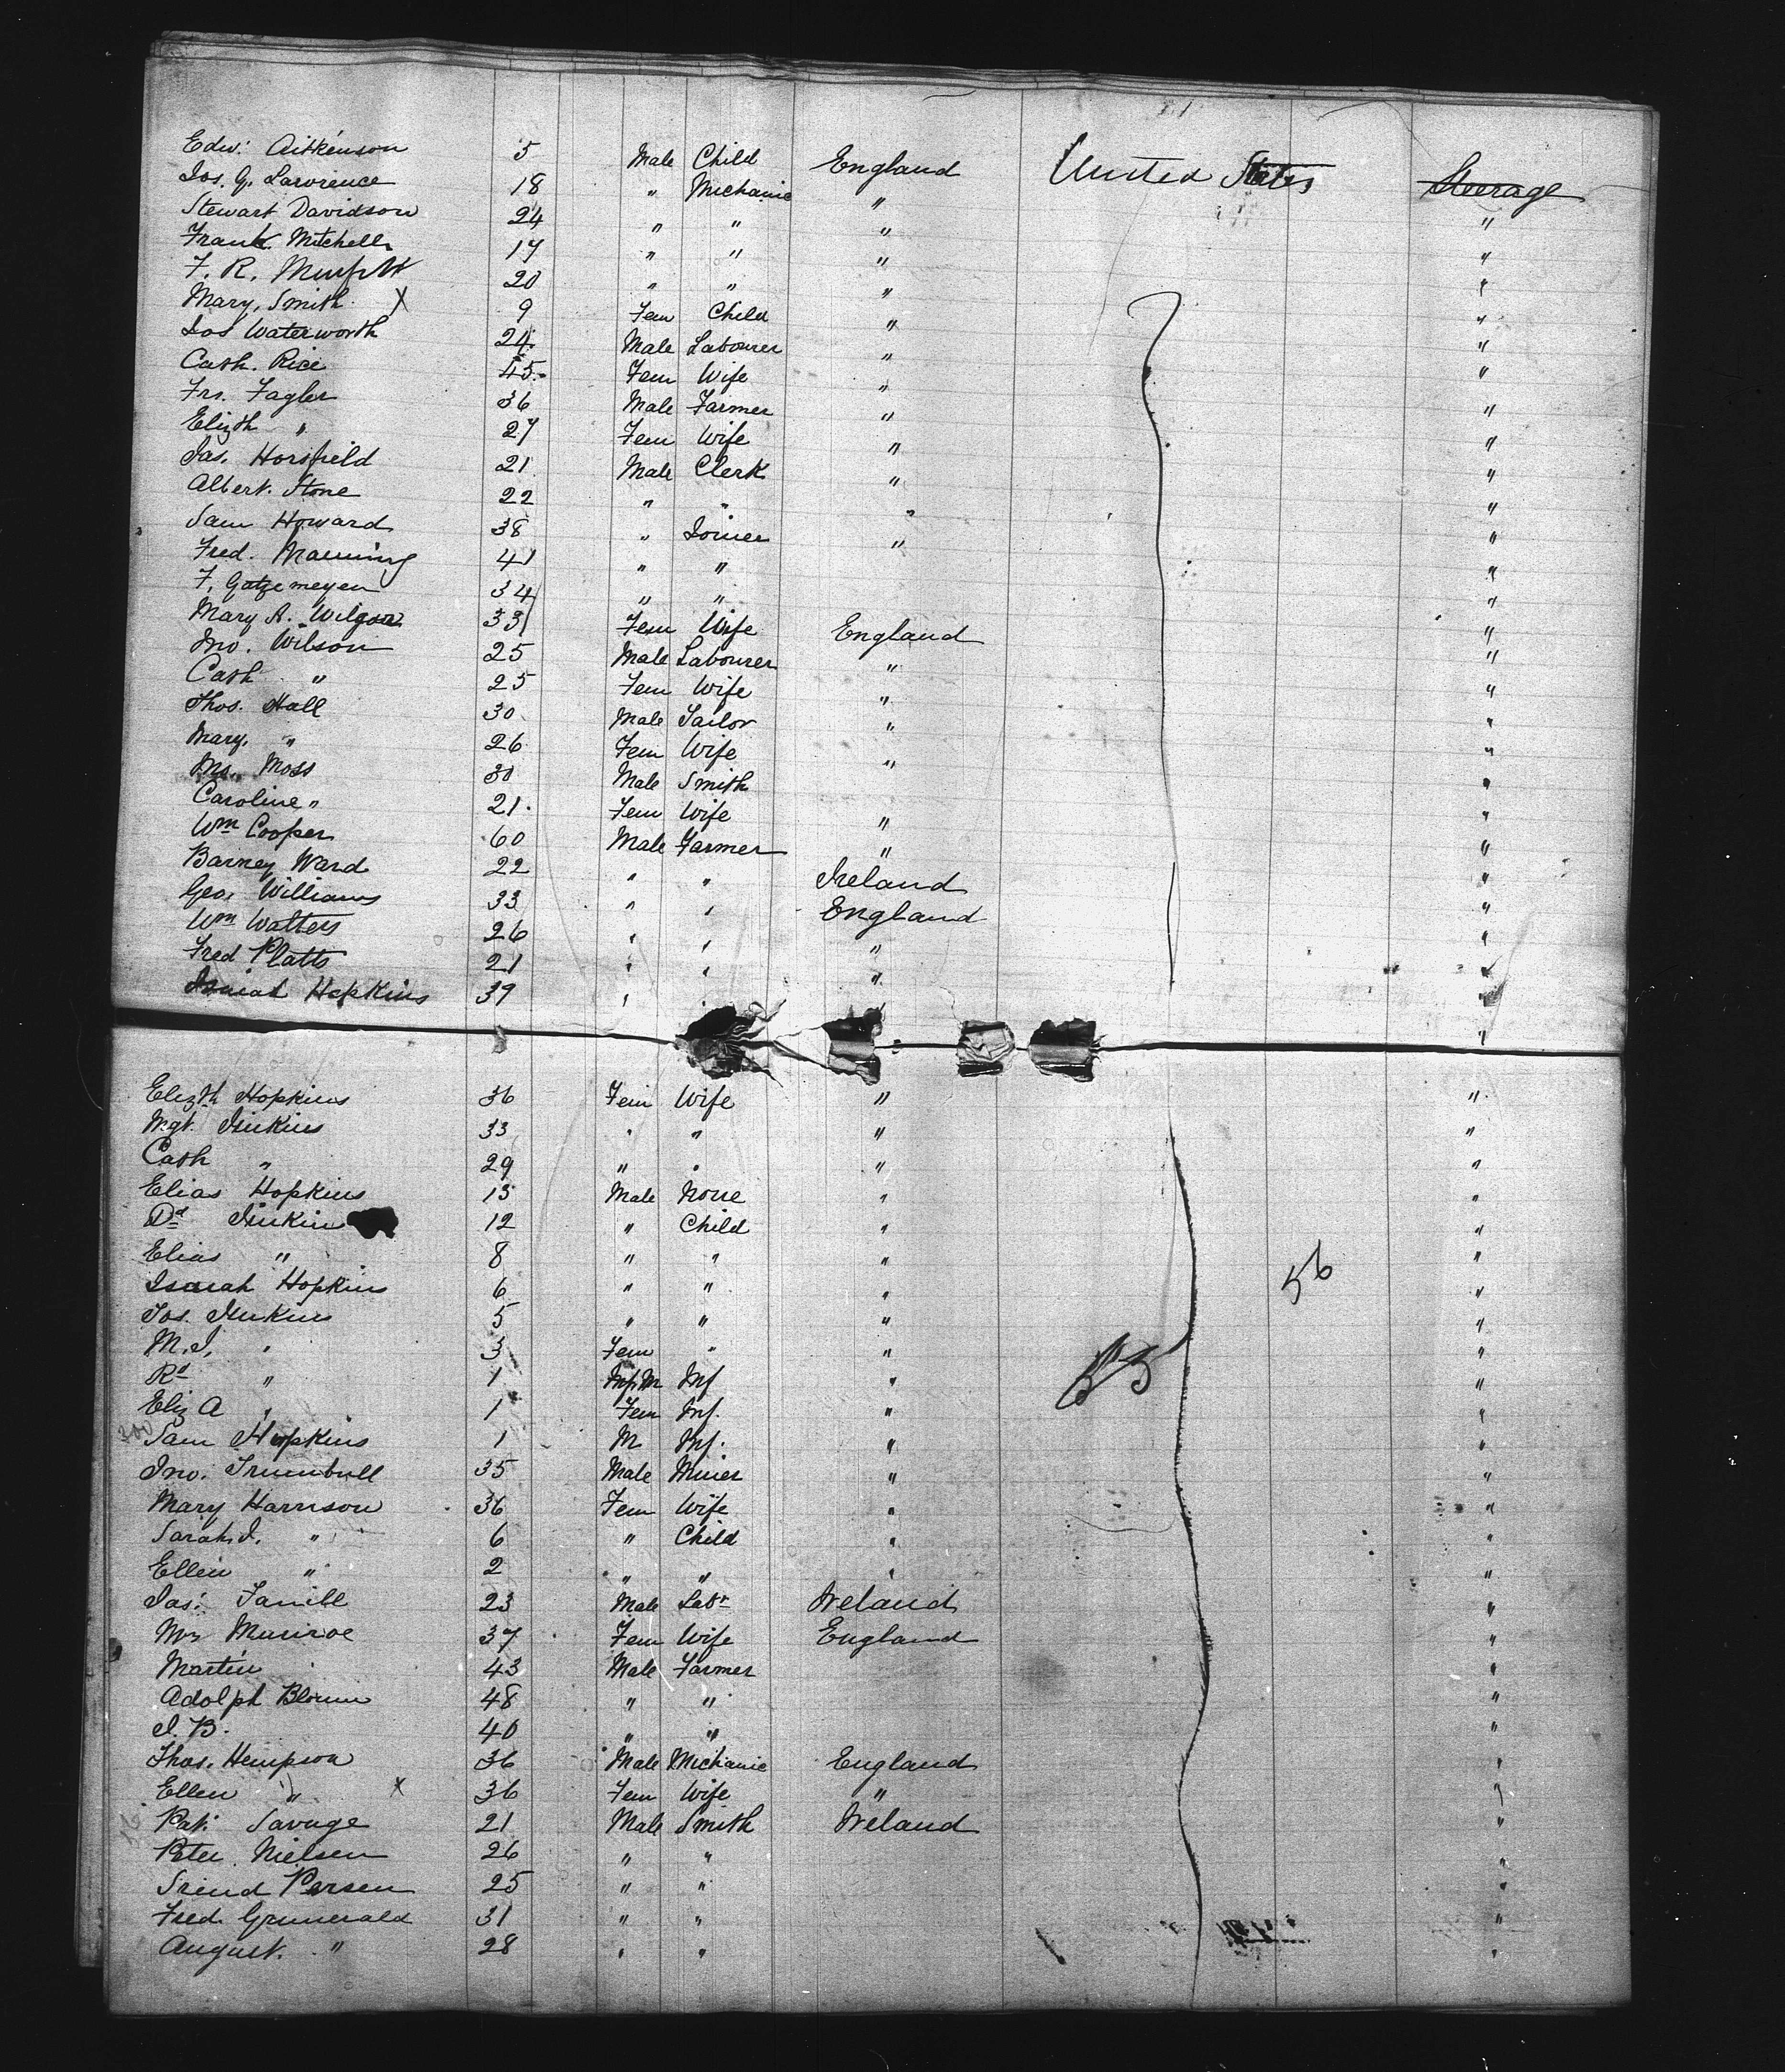 Edw: Aitkenson 5 Male Child England United States Steerage
Jos. G. Lawrence 18 " Mechanic " "
Stewart Davidson 24 " " " "
Frank Mitchell 17 " " " "
F. R. 20 " " " "
Mary Smith X 9 Fem Child " "
Jos Waterworth 24 Male Labourer " "
Cath. Rice 45 Fem Wife " "
Frs. Fagler 36 Male Farmer " "
Elizth " 27 Fem Wife " "
Jas. Horsfield 21 Male Clerk " "
Albert. Stone 22 " " " "
Sam Howard 38 " Joiner " "
Fred. Manning 41 " " "
F. Gatzemeyen 34 " " "
Mary A. Wilson 33 Fem Wife England "
Jno. Wilson 25 Male Labourer " "
Cath " 25 Fem Wife " "
Thos. Hall 30 Male Tailor " "
Mary. " 26 Fem Wife " "
Moss 30 Male Smith "
Caroline " 21 Fem Wife " "
Wm Cooper 60 Male Farmer " "
Barney Ward 22 " " Ireland "
Geo. Williams 33 " " England "
Wm Walters 26 " " " "
Fred Platts 21 " " " "
Isaiah Hopkins 39 " " " "
Elizth Hopkins 36 Fem Wife " "
Mgt. Jinkins 33 " " " "
Cath " 29 " " " "
Elias Hopkins 13 Male None " "
Dd Jinkin 12 " Child " "
Elias " 8 " " " "
Isaiah Hopkins 6 " " " 56 "
Jos. Jinkins 5 " " " "
M. J. " 3 Fem " " "
Rd " 1 Inf M Inf " 53 "
Eliz A " 1 Fem Inf. " "
300 Sam Hopkins 1 M Inf. " "
Jno. Trumbull 35 Male Miner " "
Mary Harrison 36 Fem Wife " "
Sarah J. " 6 " Child " "
Ellen " 2 " " " "
Jas. 23 Male Labr Ireland "
Mrs Munroe 37 Fem Wife England "
Martin 43 Male Farmer "
Adolph Blumm 48 " " "
J. B. 40 " " "
Thos. Hempson 36 Male Mechanic England "
Ellen " X 36 Fem Wife " "
Pat. Savage 21 Male Smith Ireland "
Peter Nielsen 26 " " "
Persen 25 " " "
Fred. Grunerald 31 " " "
August. " 28 " " "